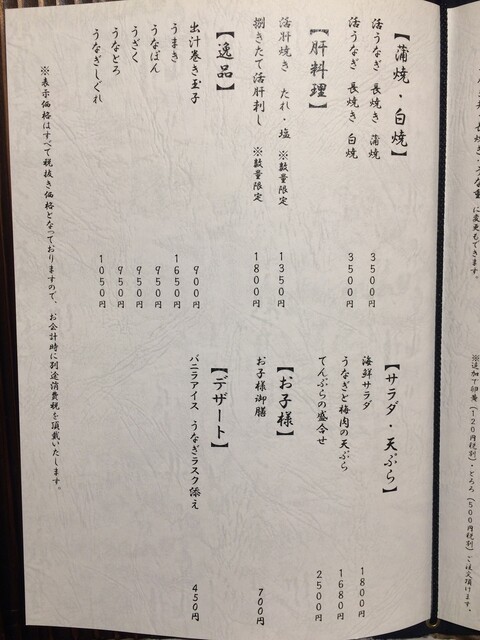 に変更もできます。
※追加で卵黄(120円税別)・とろろ(500円税別)ご注文頂けます。
【蒲焼・白焼】
活うなぎ 長焼き 蒲焼 3500円
活うなぎ 長焼き 白焼 3500円
【肝料理】
活肝焼き たれ・塩 ※数量限定 1350円
捌きたて活肝刺し ※数量限定 1800円
【逸品】
出汁巻き玉子 900円
うまき 1650円
うなばん 950円
うざく 950円
うなとろ 950円
うなぎしぐれ 1050円
【サラダ・天ぷら】
海鮮サラダ 1800円
うなぎと梅肉の天ぷら 1680円
てんぷらの盛合せ 2500円
【お子様】
お子様御膳 700円
【デザート】
バニラアイス うなぎラスク添え 450円
※表示価格はすべて税抜き価格となっておりますので、お会計時に別途消費税を頂戴いたします。